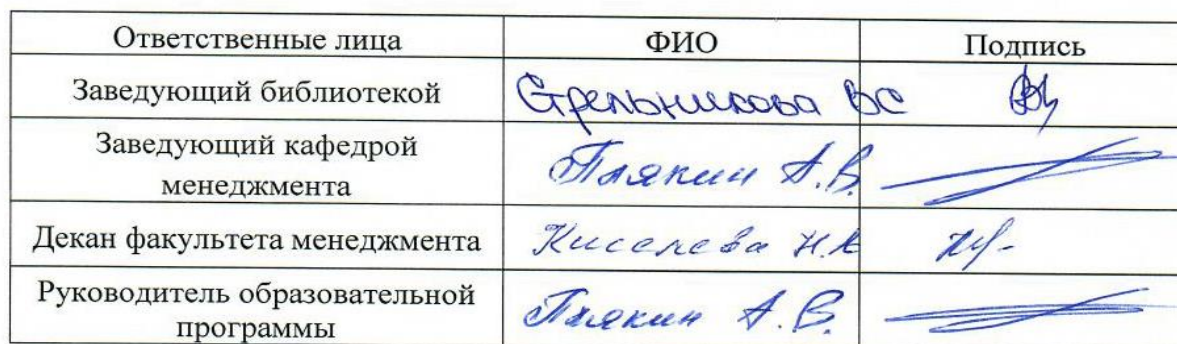 Ответственные лица ФИО Подпись
Заведующий библиотекой Стрельникова ВС
Заведующий кафедрой
менеджмента Плякин А.В.
Декан факультета менеджмента Киселева Н.
Руководитель образовательной
программы Плякин А.В.